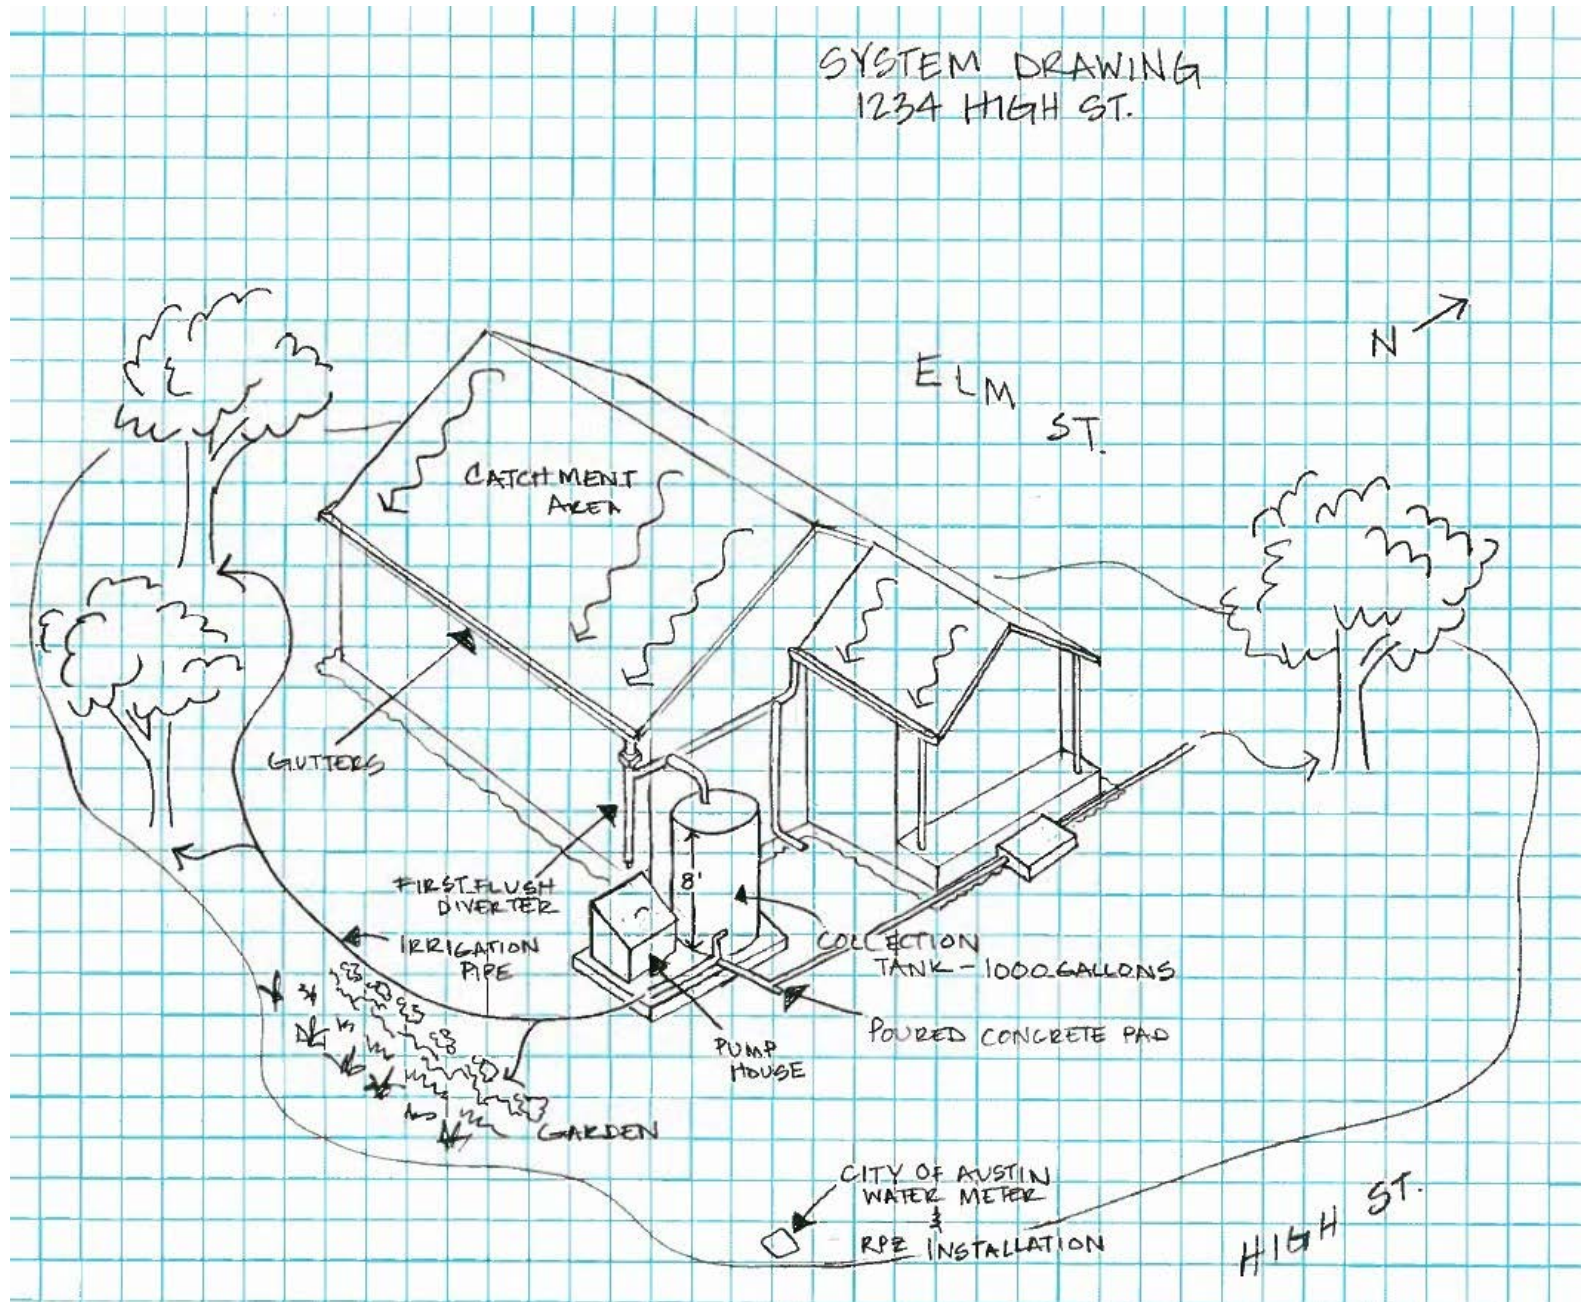 SYSTEM DRAWING
1234 HIGH ST.
N
ELM
ST.
CATCHMENT
AREA
GUTTERS
FIRST FLUSH
DIVERTER
8'
IRRIGATION
PIPE
COLLECTION
TANK - 1000 GALLONS
POURED CONCRETE PAD
PUMP
HOUSE
GARDEN
CITY OF AUSTIN
WATER METER
&
RPZ INSTALLATION
HIGH ST.